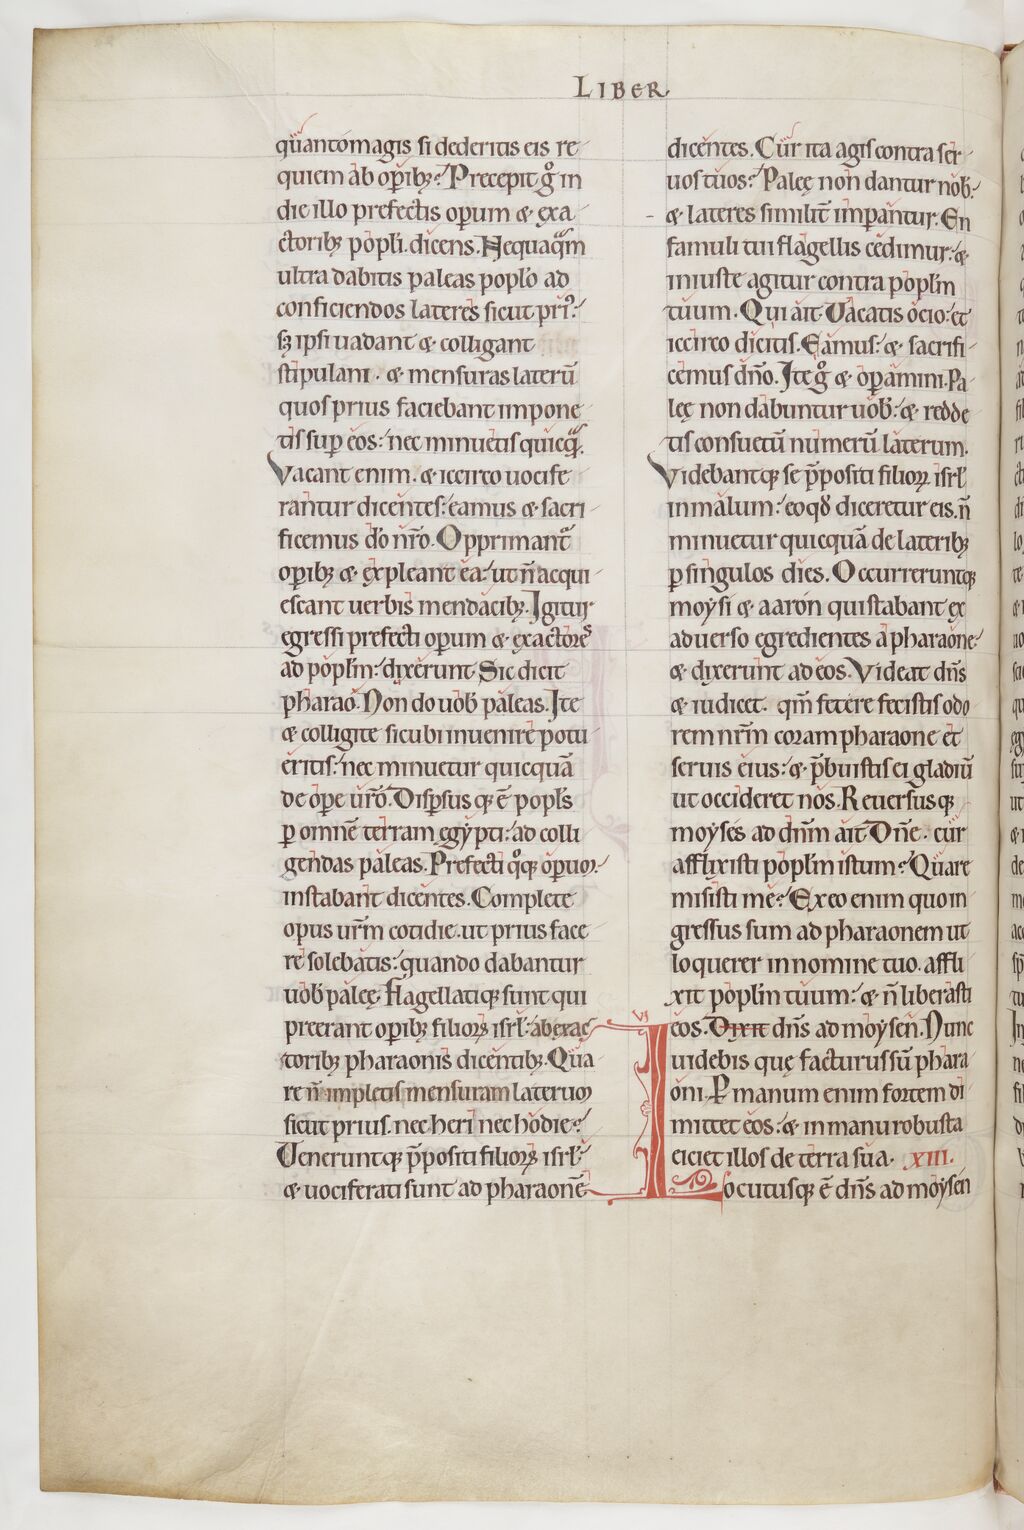 LIBER
quantomagis si dederitis eis re
quiem ab op̄ibꝫ? Precepit gͦ in
die illo prefectis op̄um & exa
ctoribꝫ popl̄i. dicens. Nequaqᵃm
ultra dabitis paleas popl̄o ad
conficiendos lateres sicut priꝰ:
sꝫ ipsi uadant & colligant
stipulam. & mensuras laterū
quos prius faciebant impone
tis sup̄ eos: nec minuetis quicqᵃ̄.
Vacant enim. & iccirco uocife
rantur dicentes: eamus & sacri
ficemus dō nr̄o. Opprimantᷣ
op̄ibꝫ & expleant ea: ut n̄ acqui
escant uerbis mendacibꝫ. Igitur
egressi prefecti op̄um & exactores
ad popl̄m: dixerunt. Sic dicit
pharao. Non do uob̄ paleas. Ite
& colligite sicubi inuenire potu
eritis: nec minuetur quicquā
de op̄e ur̄o. Disp̄sus qꝫ ē popl̄s
ꝑ omnē terram egypti: ad colli
gendas paleas. Prefecti qͦqꝫ op̄um
instabant dicentes. Complete
opus ur̄m cotidie. ut prius face
re solebatis: quando dabantur
uob̄ paleę. Flagellatiqꝫ sunt qui
preerant op̄ibꝫ filioꝝ isrl̄: ab exac
toribꝫ pharaonis dicentibꝫ. Qua
re n̄ impletis mensuram laterum
sicut prius. nec heri nec hodie?
Veneruntqꝫ p̄positi filioꝝ isrl̄:
& uociferati sunt ad pharaonē
dicentes. Cur ita agis contra ser
uos tuos? Paleę non dantur nob̄:
& lateres similit̄ imp̄antur. En
famuli tui flagellis cedimur: &
iniuste agitur contra popl̄m
tuum. Qui ait. Vacatis ocio: et
iccirco dicitis. Eamus: & sacrifi
cemus dn̄o. Ite gͦ & op̄amini. Pa
leę non dabuntur uob̄: & redde
tis consuetū numerū laterum.
Videbantqꝫ se p̄positi filioꝝ isrl̄
in malum: eo qđ diceretur eis. n̄
minuetur quicquā de lateribꝫ
ꝑ singulos dies. Occurreruntqꝫ
moysi & aaron qui stabant ex
aduerso egredientes a pharaone:
& dixerunt ad eos. Videat dn̄s
& iudicet. qm̄ fetere fecistis odo
rem nr̄m coram pharaone et
seruis eius: & p̄buistis ei gladiū
ut occideret nos. Reuersusqꝫ
moyses ad dn̄m ait. Dn̄e. cur
afflixisti popl̄m istum? Quare
misisti me? Ex eo enim quo in
gressus sum ad pharaonem ut
loquerer in nomine tuo. affli
xit popl̄m tuum: & n̄ liberasti
eos. Dixit dn̄s ad moysen. Nunc
VI
uidebis quę facturus sū phara
oni. P̲ manum enim fortem di
mittet eos: & in manu robusta
eiciet illos de terra sua. XIII.
Locutusqꝫ ē dn̄s ad moysen